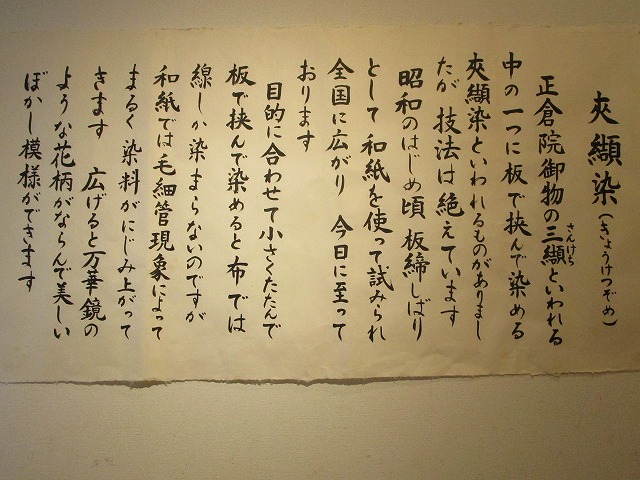 夾纈染(きょうけつぞめ)
正倉院御物の三纈といわれる
さんけち
中の一つに板で挟んで染める
夾纈染といわれるものがありまし
たが 技法は絶えています
昭和のはじめ頃 板締しばり
として 和紙を使って試みられ
全国に広がり 今日に至って
おります
目的に合わせて小さくたたんで
板で挟んで染めると布では
線しか染まらないのですが
和紙では毛細管現象によって
まるく 染料がにじみ上がって
きます 広げると万華鏡の
ような花柄がならんで美しい
ぼかし模様ができます